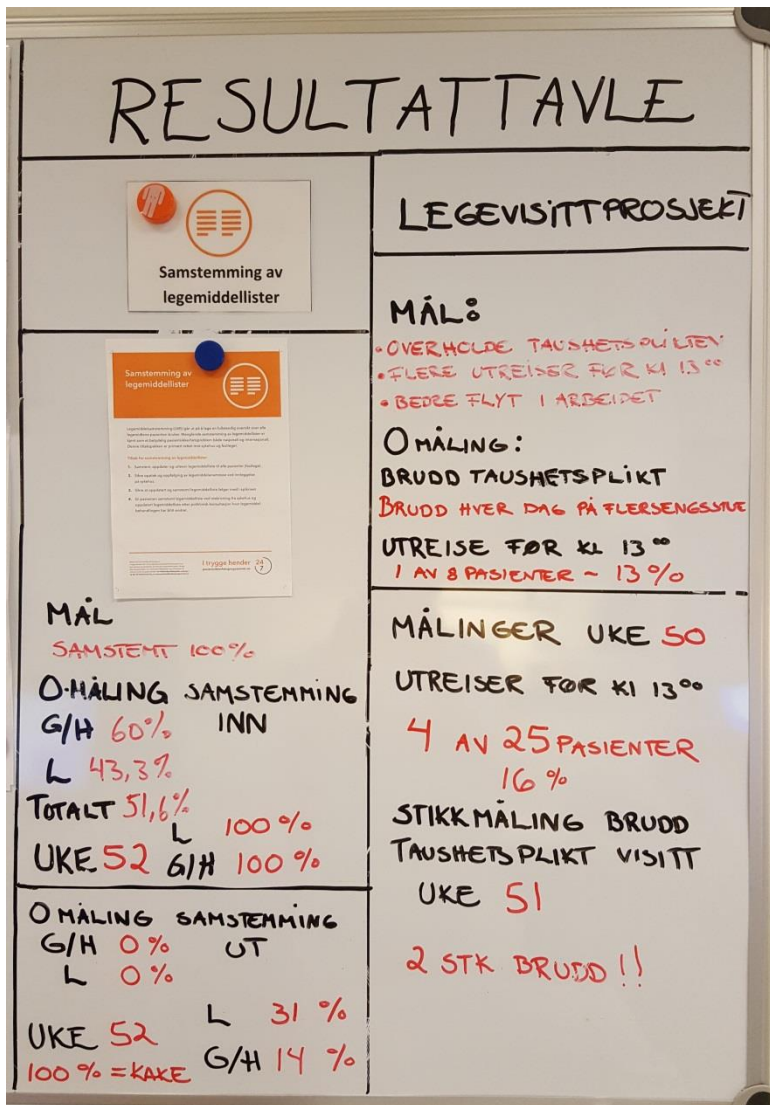 RESULTATTAVLE
Samstemming av
legemiddellister
Samstemming av
legemiddellister
I trygge hender 24
7
MÅL
SAMSTEMT 100%
O-MÅLING SAMSTEMMING
G/H 60% INN
L 43,3%
TOTALT 51,6%
L 100%
UKE 52 G/H 100%
OMÅLING SAMSTEMMING
G/H 0% UT
L 0%
L 31%
UKE 52
G/H 14%
100% = KAKE
LEGEVISITTPROSJEKT
MÅL:
• OVERHOLDE TAUSHETSPLIKTEN
• FLERE UTREISER FØR Kl 13⁰⁰
• BEDRE FLYT I ARBEIDET
OMÅLING:
BRUDD TAUSHETSPLIKT
BRUDD HVER DAG PÅ FLERSENGSSTUE
UTREISE FØR KL 13⁰⁰
1 AV 8 PASIENTER ~ 13%
MÅLINGER UKE 50
UTREISER FØR Kl 13⁰⁰
4 AV 25 PASIENTER
16%
STIKKMÅLING BRUDD
TAUSHETSPLIKT VISITT
UKE 51
2 STK BRUDD!!